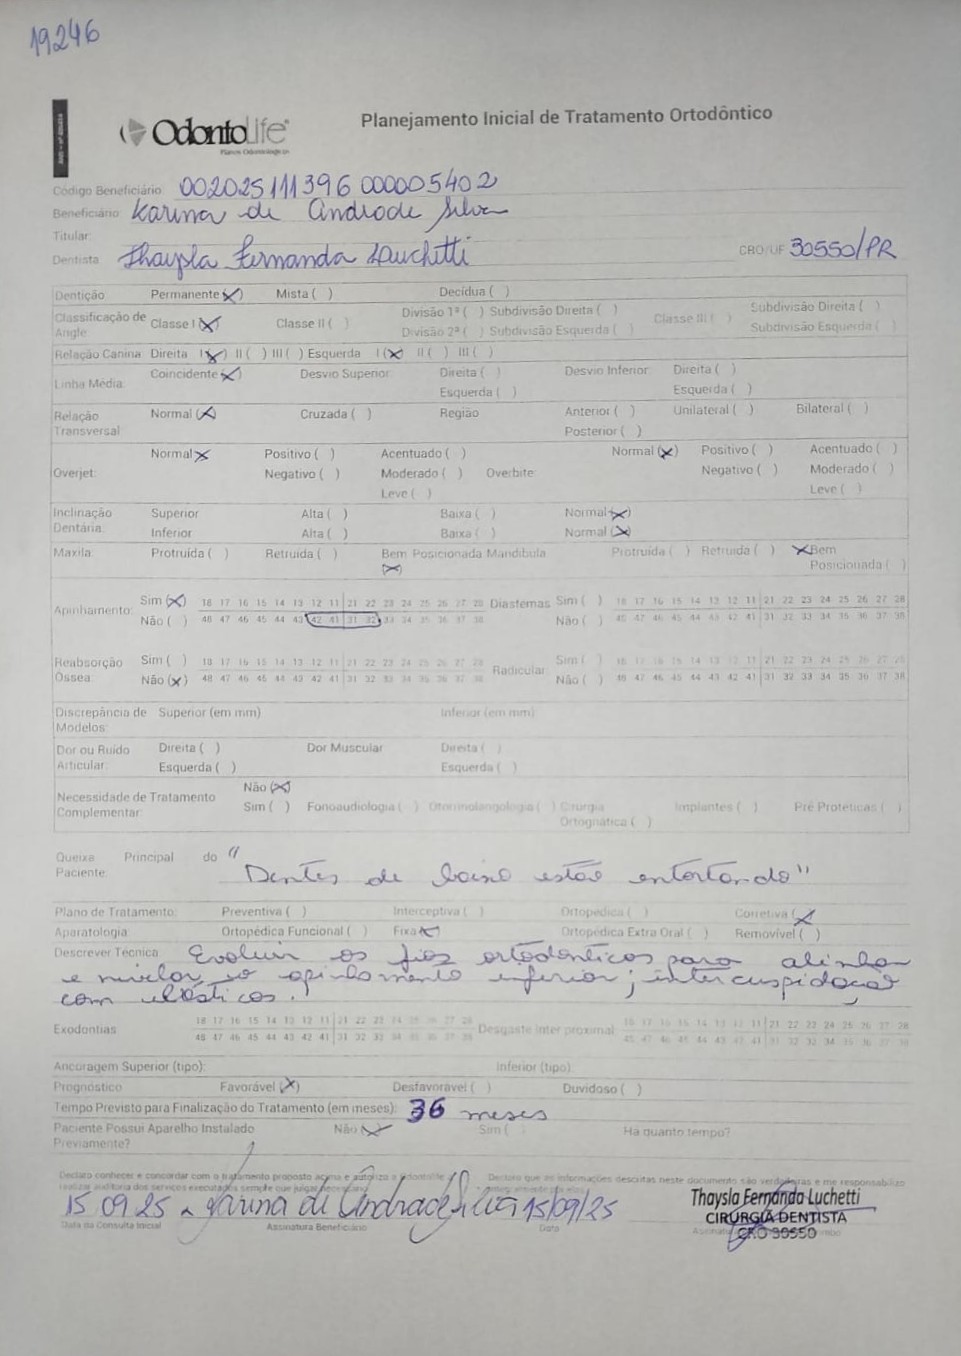 19246
ANS - nº 405414
OdontoLife
Planos Odontológicos
Planejamento Inicial de Tratamento Ortodôntico
Código Beneficiário: 00202511139600005402
Beneficiário: Karina de Andrade Silva
Titular:
Dentista: Thaysla Fernanda Luchetti CRO/UF 30550/PR
Dentição Permanente (X) Mista ( ) Decídua ( )
Classificação de Angle: Classe I (X) Classe II ( ) Divisão 1ª ( ) Subdivisão Direita ( ) Classe III ( ) Subdivisão Direita ( )
Divisão 2ª ( ) Subdivisão Esquerda ( ) Subdivisão Esquerda ( )
Relação Canina Direita I (X) II ( ) III ( ) Esquerda I (X) II ( ) III ( )
Linha Média: Coincidente (X) Desvio Superior: Direita ( ) Desvio Inferior: Direita ( )
Esquerda ( ) Esquerda ( )
Relação Transversal Normal (X) Cruzada ( ) Região Anterior ( ) Unilateral ( ) Bilateral ( )
Posterior ( )
Overjet: Normal X Positivo ( ) Acentuado ( ) Overbite: Normal (X) Positivo ( ) Acentuado ( )
Negativo ( ) Moderado ( ) Negativo ( ) Moderado ( )
Leve ( ) Leve ( )
Inclinação Dentária: Superior Alta ( ) Baixa ( ) Normal (X)
Inferior Alta ( ) Baixa ( ) Normal (X)
Maxila: Protruída ( ) Retruída ( ) Bem Posicionada (X) Mandíbula Protruída ( ) Retruída ( ) X Bem Posicionada ( )
Apinhamento: Sim (X) 18 17 16 15 14 13 12 11 21 22 23 24 25 26 27 28 Diastemas Sim ( ) 18 17 16 15 14 13 12 11 21 22 23 24 25 26 27 28
Não ( ) 48 47 46 45 44 43 42 41 31 32 33 34 35 36 37 38 Não ( ) 48 47 46 45 44 43 42 41 31 32 33 34 35 36 37 38
Reabsorção Óssea: Sim ( ) 18 17 16 15 14 13 12 11 21 22 23 24 25 26 27 28 Radicular: Sim ( ) 18 17 16 15 14 13 12 11 21 22 23 24 25 26 27 28
Não (X) 48 47 46 45 44 43 42 41 31 32 33 34 35 36 37 38 Não ( ) 48 47 46 45 44 43 42 41 31 32 33 34 35 36 37 38
Discrepância de Modelos: Superior (em mm) Inferior (em mm)
Dor ou Ruído Articular: Direita ( ) Dor Muscular Direita ( )
Esquerda ( ) Esquerda ( )
Necessidade de Tratamento Complementar: Não (X)
Sim ( ) Fonoaudiologia ( ) Otorrinolaringologia ( ) Cirurgia Ortognática ( ) Implantes ( ) Pré Protéticas ( )
Queixa Principal do Paciente: "Dentes de baixo estão entortando"
Plano de Tratamento: Preventiva ( ) Interceptiva ( ) Ortopédica ( ) Corretiva (X)
Aparatologia: Ortopédica Funcional ( ) Fixa (X) Ortopédica Extra Oral ( ) Removível ( )
Descrever Técnica: Evoluir os fios ortodônticos para alinhar
e nivelar o apinhamento inferior; intercuspidação
com elásticos.
Exodontias 18 17 16 15 14 13 12 11 21 22 23 24 25 26 27 28 Desgaste Inter proximal 18 17 16 15 14 13 12 11 21 22 23 24 25 26 27 28
48 47 46 45 44 43 42 41 31 32 33 34 35 36 37 38 48 47 46 45 44 43 42 41 31 32 33 34 35 36 37 38
Ancoragem Superior (tipo): Inferior (tipo)
Prognóstico Favorável (X) Desfavorável ( ) Duvidoso ( )
Tempo Previsto para Finalização do Tratamento (em meses): 36 meses
Paciente Possui Aparelho Instalado Previamente? Não (X) Sim ( Há quanto tempo?
Declaro conhecer e concordar com o tratamento proposto acima e autorizo a Odontolife Declaro que as informações descritas neste documento são verdadeiras e me responsabilizo
realizar auditoria dos serviços executados sempre que julgar necessário
15 09 25 Karina de Andrade Silva 15/09/25
Data da Consulta Inicial Assinatura Beneficiário Data
Thaysla Fernanda Luchetti
CIRURGIÃ DENTISTA
CRO 30550